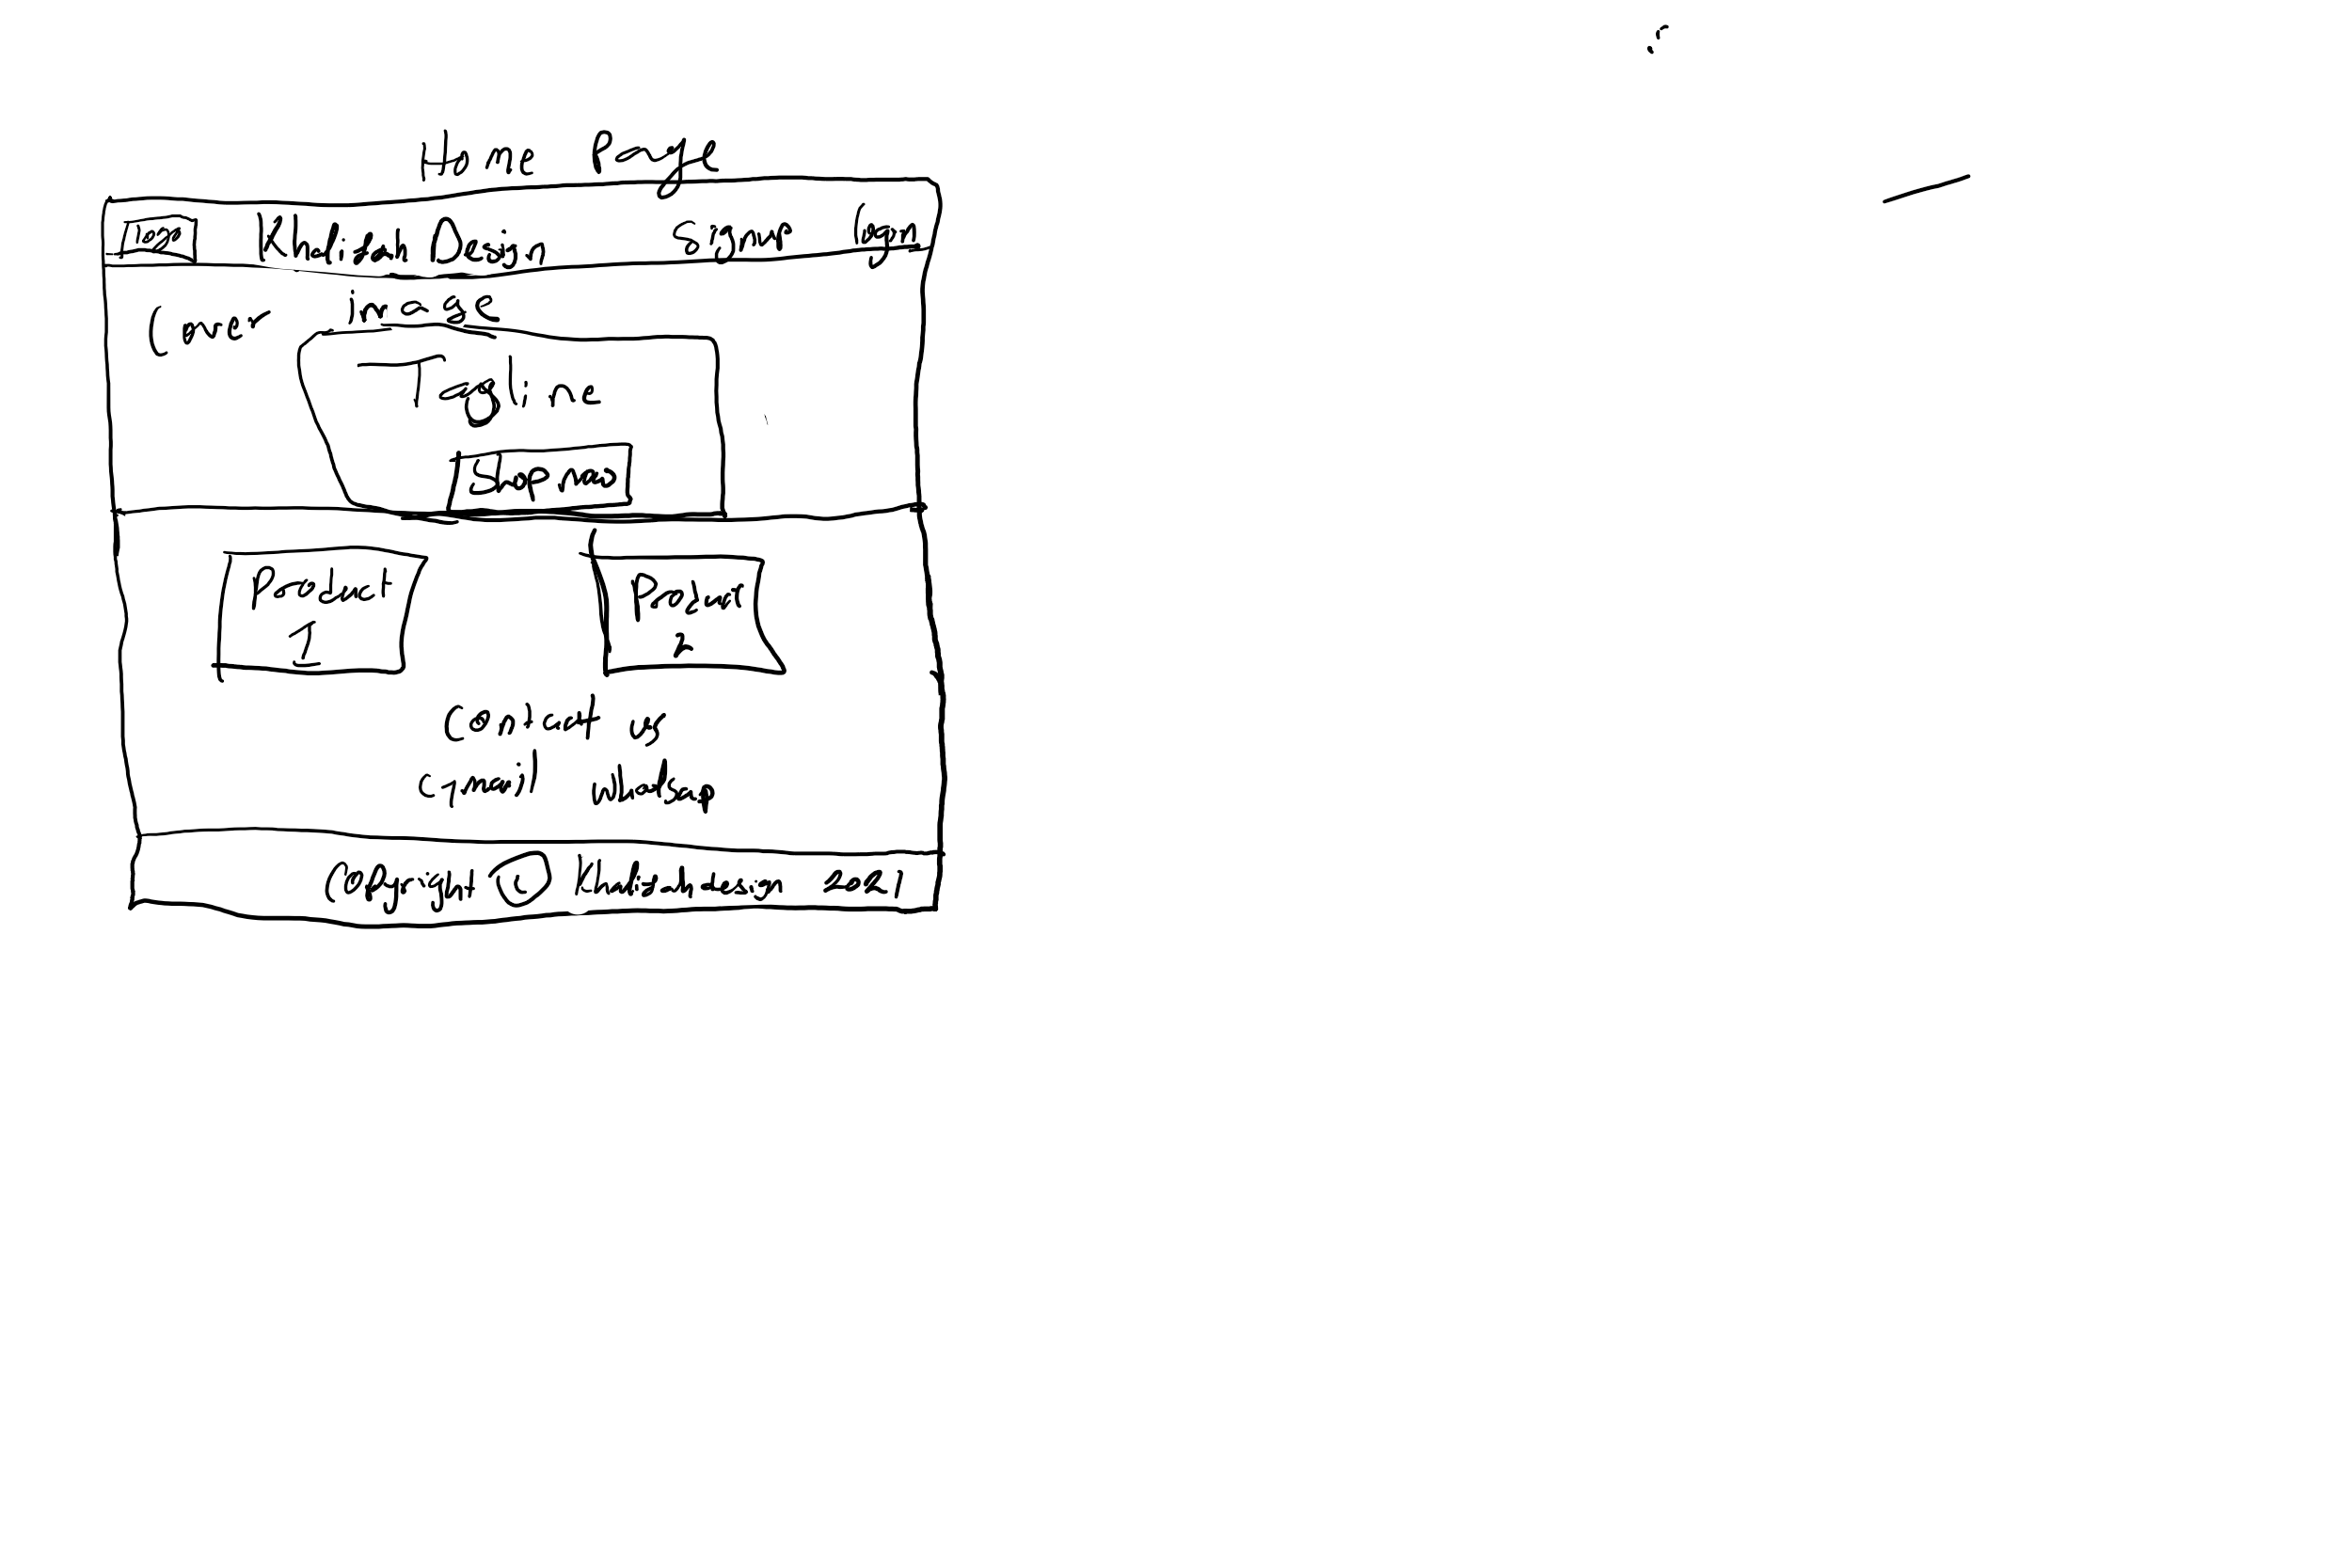 Home Page
Logo Khalifah Design Signup login
Cover image
Tagline
Shop now
Product 1
Product 2
Contact us
Gmail Whatsap
Copyright © Khalifah design 2021